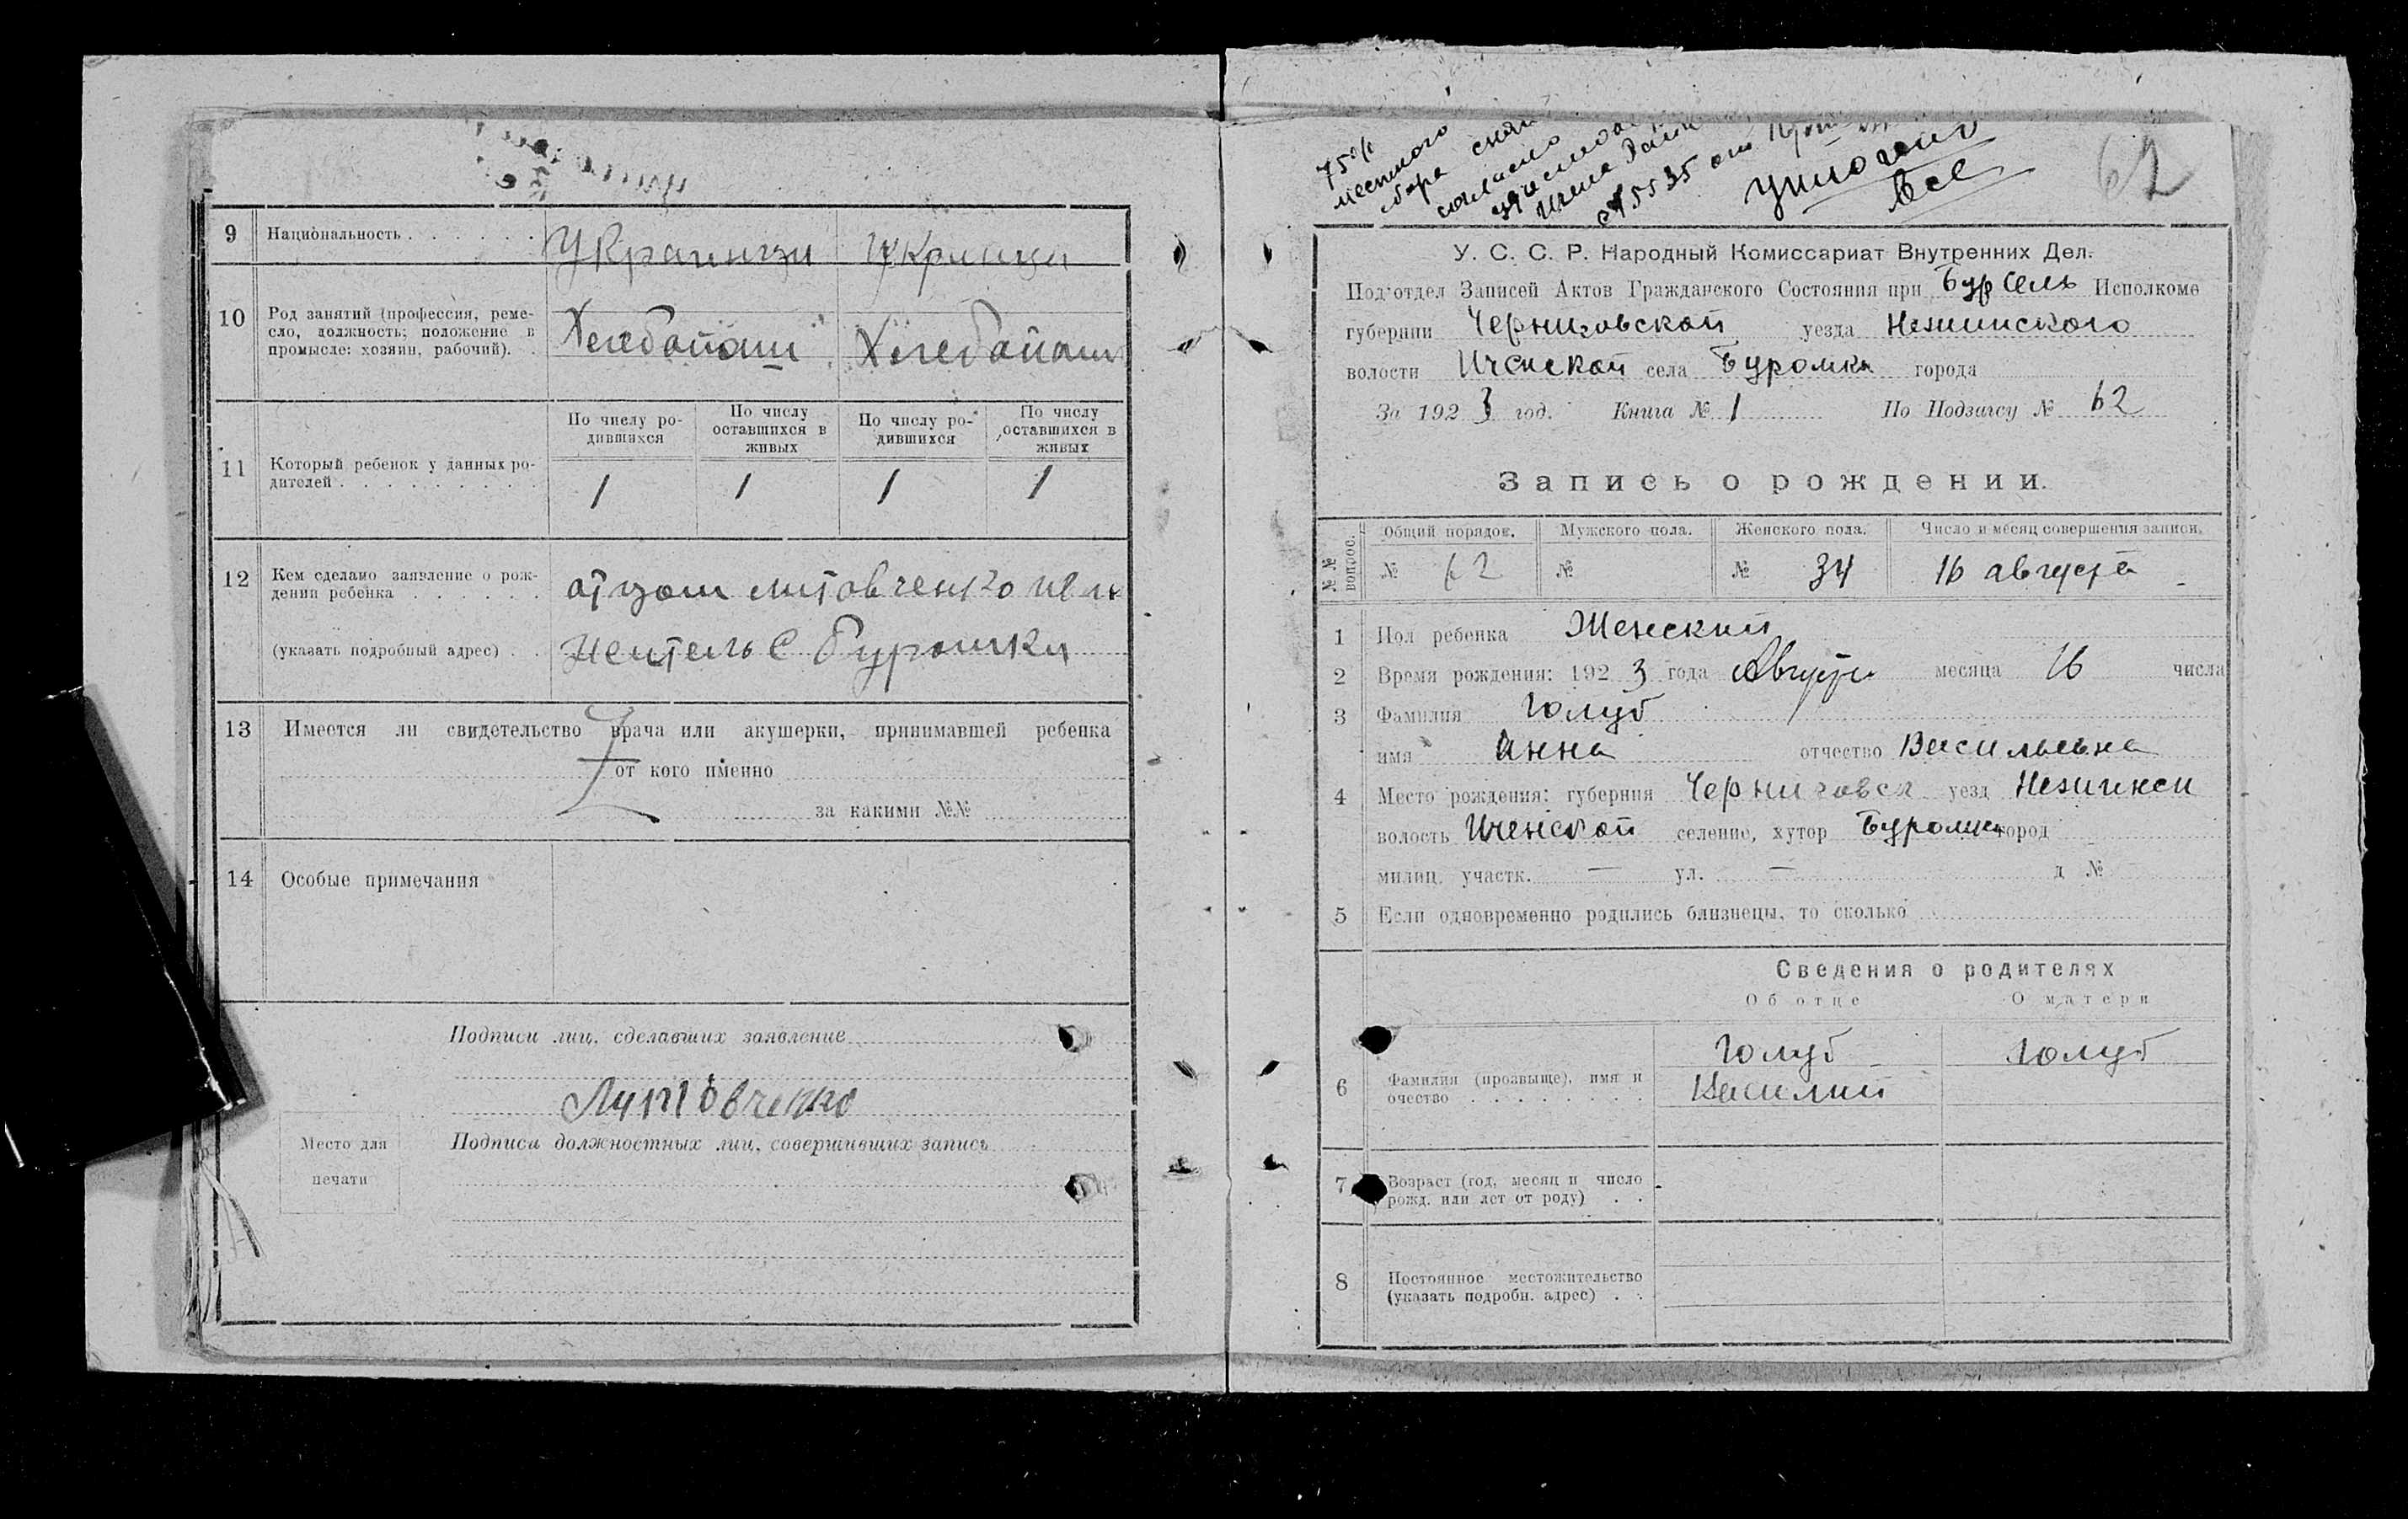 9 Национальность . . . . . . Украинци Украинци
10 Род занятий (профессия, реме-
сло, должность; положение в
промысле: хозяин, рабочий). . Хлебопаш Хлебопаш
По числу ро-
дившихся
По числу
оставшихся в
живых
По числу ро-
дившихся
По числу
оставшихся в
живых
11 Который ребенок у данных ро-
дителей . . . . . . . . . 1 1 1 1
12 Кем сделано заявление о рож-
дении ребенка . . . . . . отцом Литовченко
(указать подробный адрес) . . Житель с Буромки
13 Имеется ли свидетельство врача или акушерки, принимавшей ребенка
от кого именно
за какими №№
14 Особые примечания
Подписи лиц, сделавших заявление
Литовченко
Место для
печати
Подписи должностных лиц, совершивших запись
75%
местного
сбора
согласно
№ 5535 от
уплочено
все
62
У. С. С. Р. Народный Комиссариат Внутренних Дел.
Под'отдел Записей Актов Гражданского Состояния при Бурсель Исполкоме
губернии Черниговской уезда Нежинского
волости Иченской села Буромка города
За 1923 год. Книга № 1 По Подзагсу № 62
Запись о рождении.
№№ вопрос. Общий порядок. Мужского пола. Женского пола. Число и месяц совершения записи.
№ 62 № № 34 16 августа
1 Пол ребенка Женский
2 Время рождения: 1923 года Августа месяца 16 числа
3 Фамилия Голуб
имя Анна отчество Васильевна
4 Место рождения: губерния Черниговск уезд Нежинск
волость Иченской селение, хутор Буромка город
милиц. участк. — ул. — д №
5 Если одновременно родились близнецы, то сколько
Сведения о родителях
Об отце О матери
6 Фамилия (прозвыще), имя и
очество . . . . . . . . Голуб Василий Голуб
7 Возраст (год, месяц и число
рожд. или лет от роду) . .
8 Постоянное местожительство
(указать подробн. адрес) . .